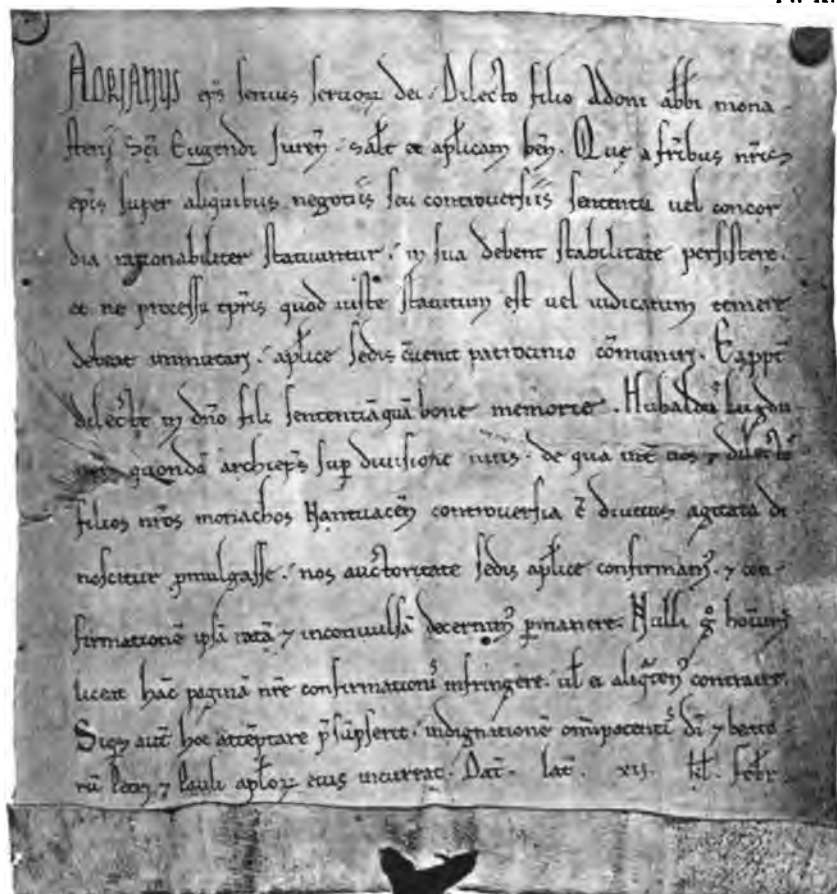 ADRIANUS ep̄s seruus seruoꝝ dei. Dilecto filio Adoni abb̄i mona
sterij Sc̄i Eugendi Iureñ. salt̄ et ap̄licam beñ. Que a fr̄ibus nr̄is
ep̄is super aliquibus negotiis seu controuersiis sententia uel concor
dia rationabiliter statuuntur. in sua debent stabilitate persistere.
et ne processu tp̄ris quod iuste statutum est uel iudicatum temere
debeat immutari. ap̄lice sedis c̄uenit patrocinio cōmuniri. Eapp̄t
dilecte in dn̄o fili sententiā quā bone memorie. Hubaldus Lugdu
quondā archiep̄s suꝑ diuisione iuris. de qua int̄ uos ⁊ dilectos
filios nr̄os monachos Nantuaceñ controuersia ē diutius agitata di
noscitur ꝓmulgasse. nos auctoritate sedis ap̄lice confirmamꝰ. ⁊ con
firmationē ipsā ratā ⁊ inconuulsā decernimꝰ ꝑmanere. Nulli gͦ hoīum
liceat hāc paginā nr̄e confirmationis infringere. ul̄ ei aliqͣtenꝰ contraire.
Siqis aut̄ hoc attēptare p̄sūpserit. indignationē om̄ipotentis dī ⁊ beato
rū Petri ⁊ Pauli ap̄loꝝ eius incurrat. Dat̄. lat̄. xij. kl̄. febr̄